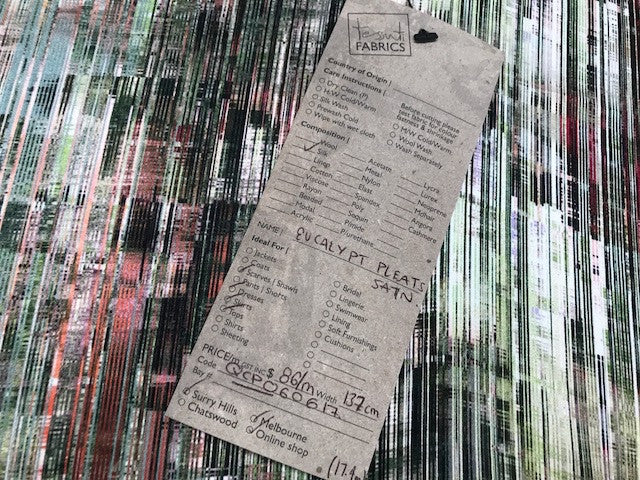 tessuti
FABRICS
Country of Origin /
Care Instructions /
Dry Clean (P)
H/W Cold/Warm
Silk Wash
Prewash Cold
Wipe with wet cloth
Before cutting please
test fabric for colour
fastness & shrinkage
M/W Cold/Warm
Wool Wash
Wash Separately
Composition /
Wool
Silk
Linen
Cotton
Viscose
Rayon
Beaded
Modal
Acrylic
Acetate
Metal
Nylon
Elast
Spandex
Poly
Sequin
P/urethane
Lycra
Lurex
Neoprene
Mohair
Angora
Cashmere
NAME/ EUCALYPT PLEATS
SATN
Ideal For /
Jackets
Coats
Scarves / Shawls
Pants / Shorts
Dresses
Skirts
Tops
Shirts
Sheeting
Bridal
Lingerie
Swimwear
Lining
Soft-Furnishings
Cushions
PRICE/m GST INC $ 88/m Width 137cm
Code QCP060617
Bay #
Surry Hills
Chatswood
Melbourne
Online shop